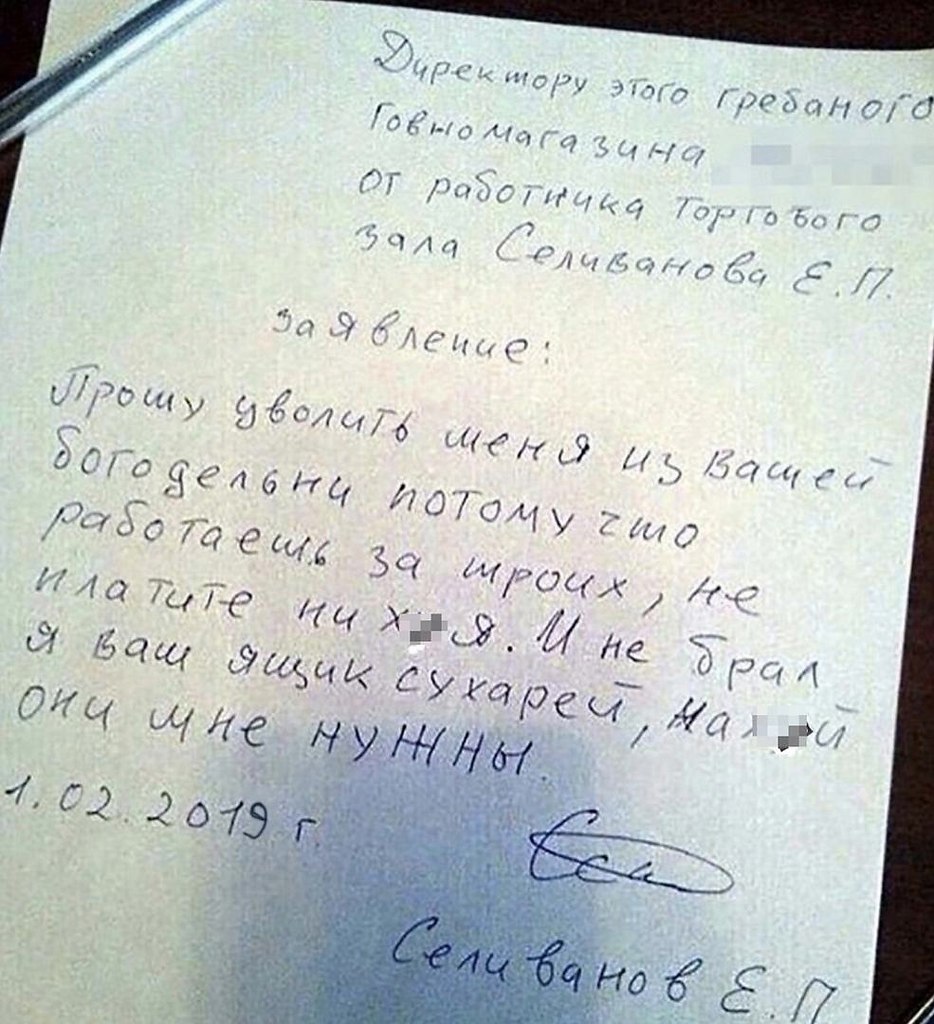 Директору этого гребаного
Говномагазина
от работника Торгового
зала Селиванова Е.П.
заявление:
Прошу уволить меня из вашей
богодельни потому что
работаешь за троих, не
платите ни х я. И не брал
я ваш ящик сухарей, на й
они мне нужны.
1.02.2019 г.
Селиванов Е.П